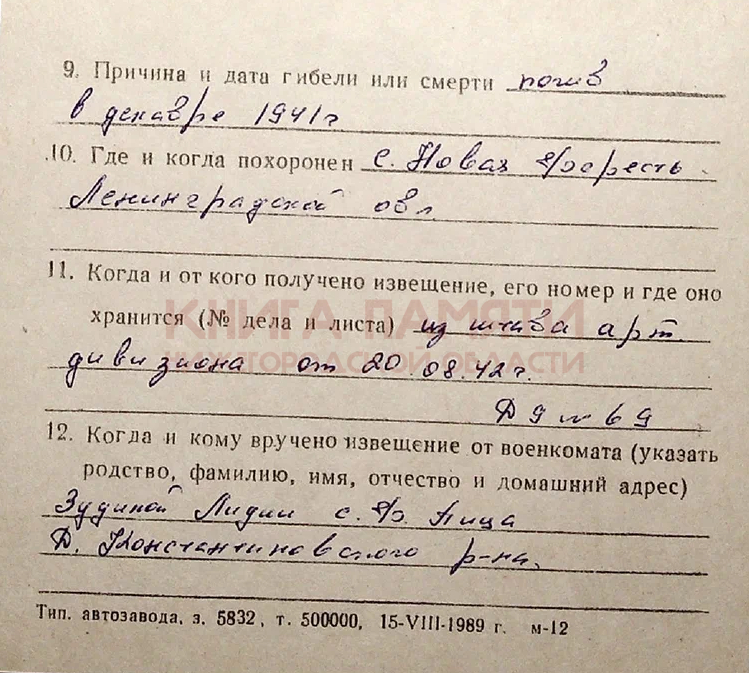 9. Причина и дата гибели или смерти погиб
в декабре 1941г
10. Где и когда похоронен с. Новая
Ленинградской обл
11. Когда и от кого получено извещение, его номер и где оно
хранится (№ дела и листа) из штаба арт.
КНИГА ПАМЯТИ
НИЖЕГОРОДСКОЙ ОБЛАСТИ
дивизиона от 20.08.42г.
Д 9 л 69
12. Когда и кому вручено извещение от военкомата (указать
родство, фамилию, имя, отчество и домашний адрес)
Зудиной Лидии с.
Д. Константиновского р-на.
Тип. автозавода, з. 5832, т. 500000, 15-VIII-1989 г. м-12